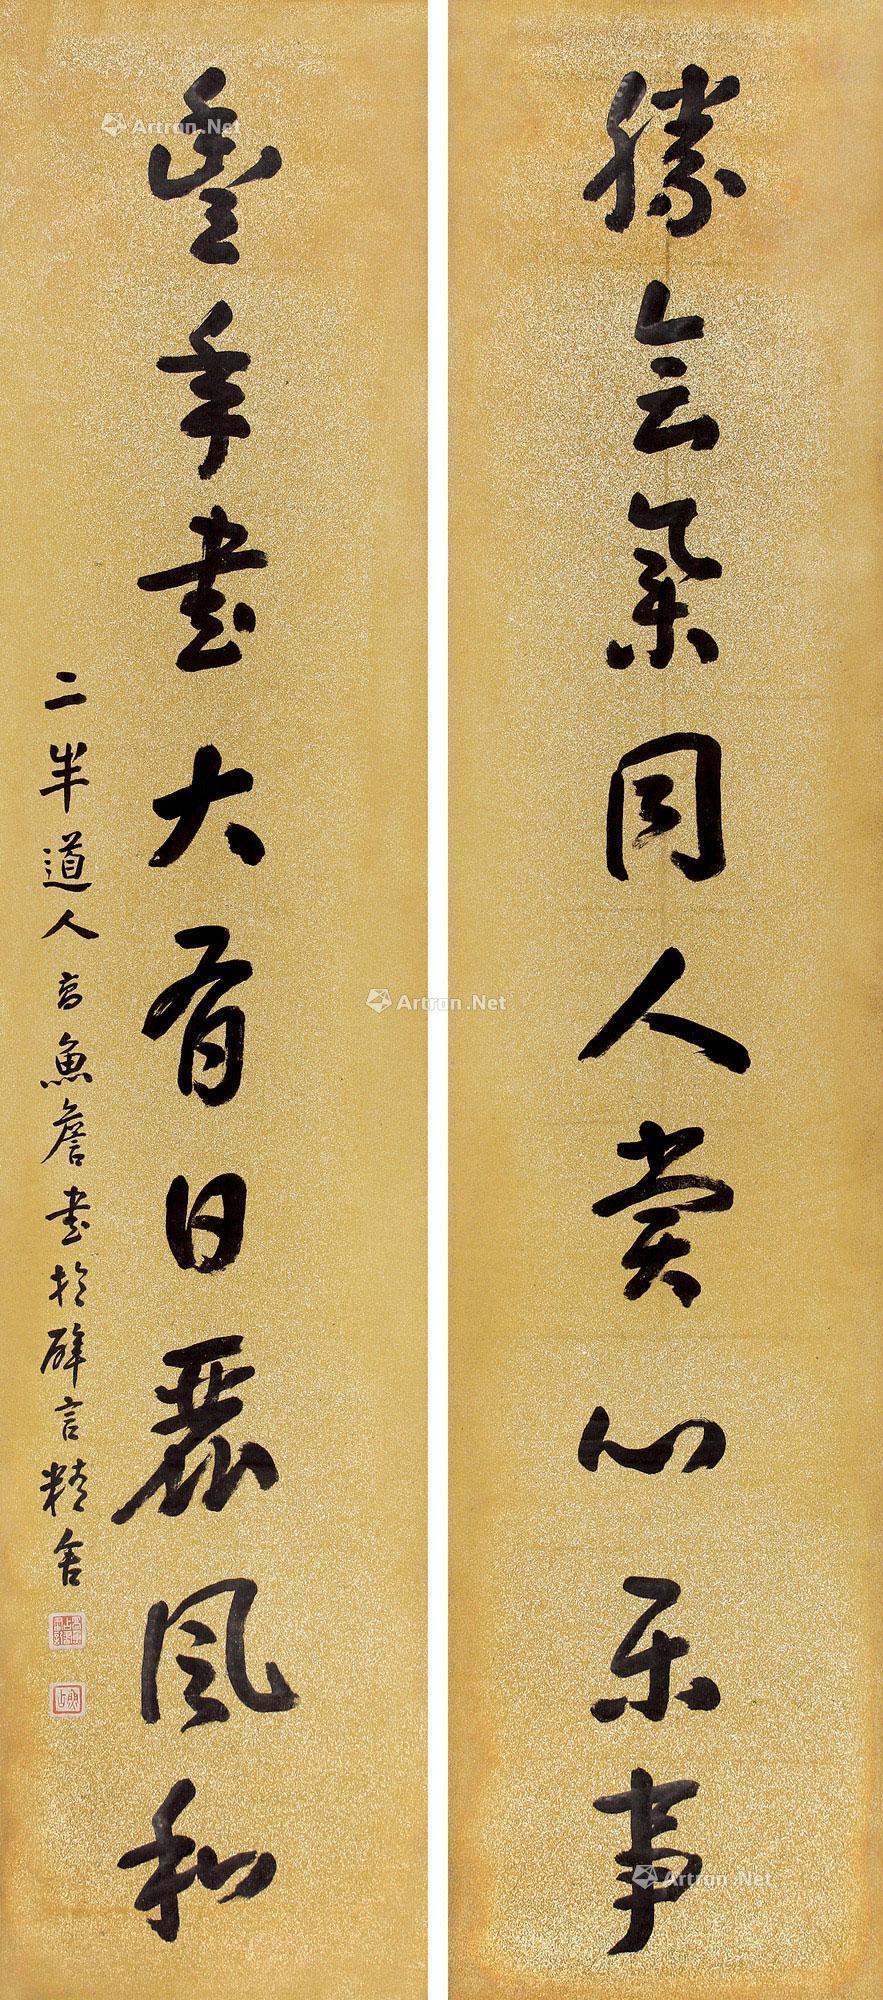 胜会集同人赏心乐事
豐年書大有日麗風和
二半道人高魚詹書於辟言精舍
Artron.Net
Artron.Net
Artron.Net